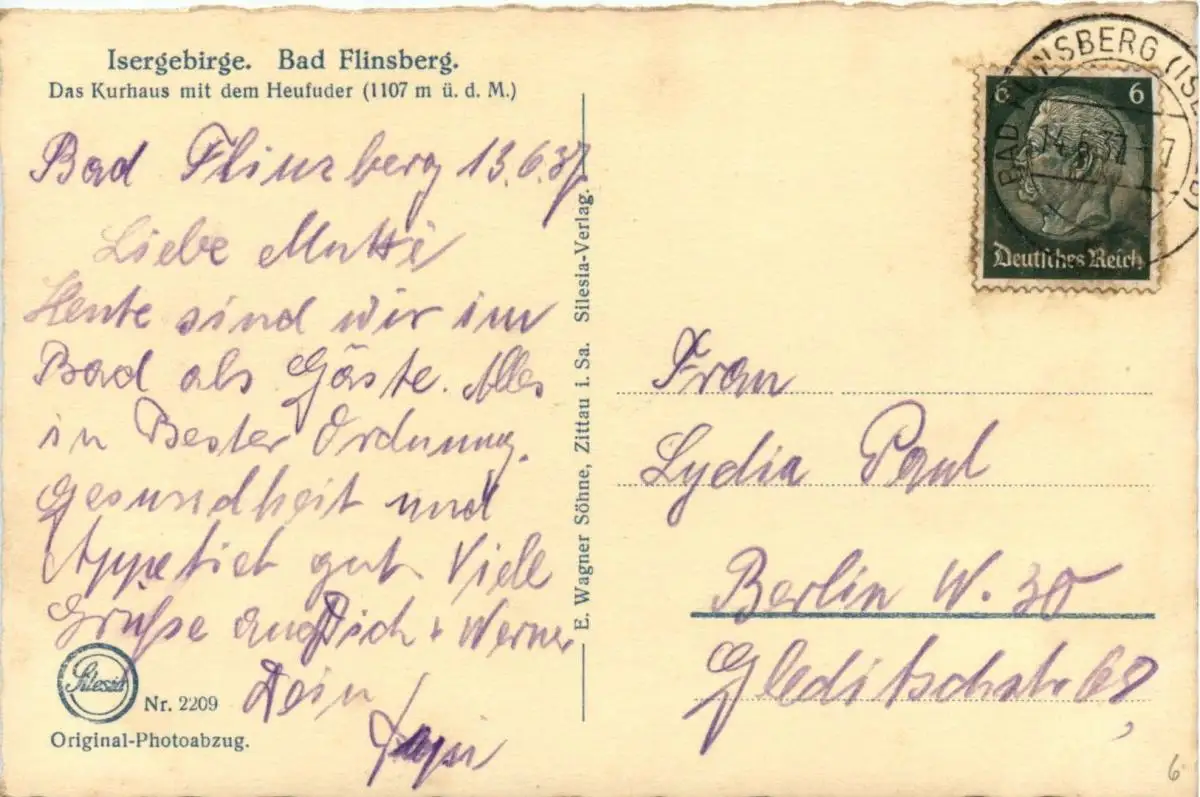 Isergebirge. Bad Flinsberg.
Das Kurhaus mit dem Heufuder (1107 m ü. d. M.)
Bad Flinsberg 13.6.37
Liebe Mutti
Heute sind wir im
Bad als Gäste. Alles
in Bester Ordnung.
Gesundheit und
Appetiet gut. Viele
Grüße an Dich + Werner
Dein
Silesia
Nr. 2209
Original-Photoabzug.
E. Wagner Söhne, Zittau i. Sa. Silesia-Verlag.
BAD FLINSBERG (IS
14.6.37
6 6
Deutsches Reich
Frau
Lydia Paul
Berlin W. 30
Gleditschstr 68
6